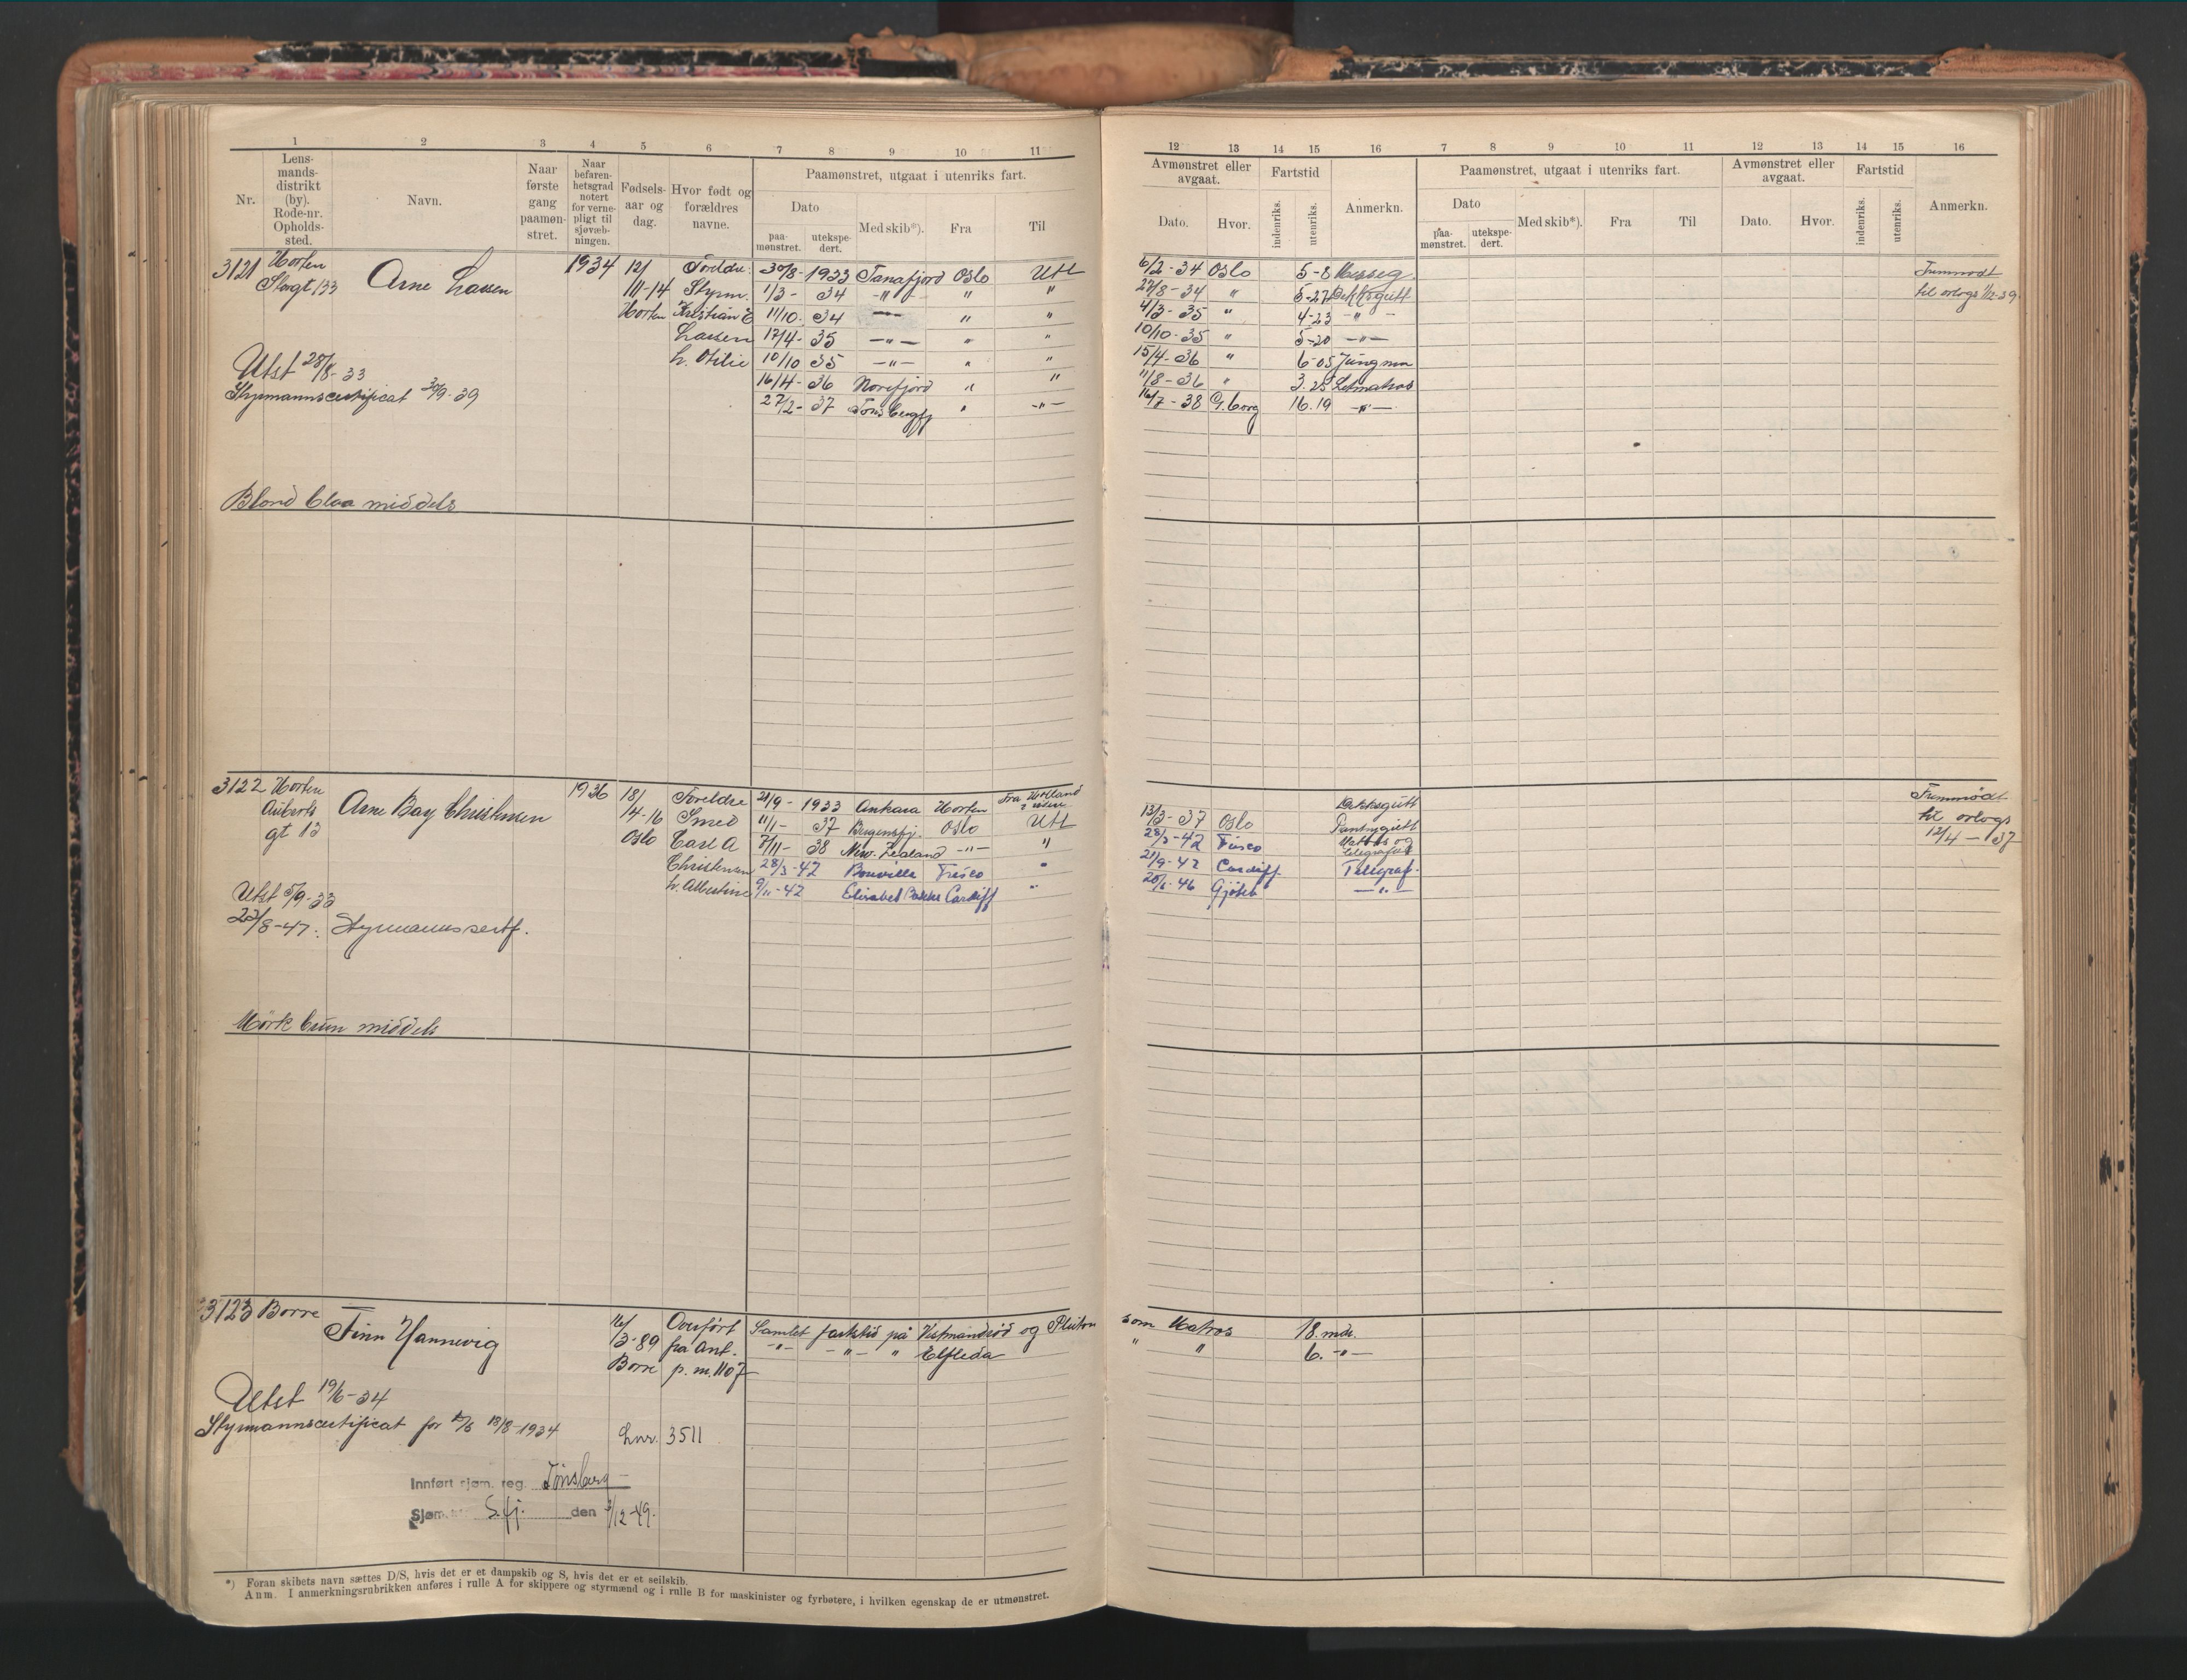 1 2 3 4 5 6 7 8 9 10 11
Nr.
Lens-
mands-
distrikt
(by).
Rode-nr.
Opholds-
sted.
Navn.
Naar
første
gang
paamøn-
stret.
Naar
befaren-
hetsgrad
notert
for verne-
pligt til
sjøvæb-
ningen.
Fødsels-
aar og
dag.
Hvor født og
forældres
navne.
Paamønstret, utgaat i utenriks fart.
Dato
paa-
mønstret.
utekspe-
dert.
Med skib*).
Fra
Til
3121 Horten
Storgt 133
Arne Lassen
1934
12/
III-14
Horten
Foreldre:
Styrm.
Kristian E
Lassen
h. Otilie
30/8- 1933 Tanafjord Oslo Utl
1/3- 34 -"- " "
11/10. 34 -"- " "
17/4- 35 -"- " "
10/10 35 -"- " "
16/4- 36 Norefjord " "
27/2- 37 Tønsbergfj " -"-
Utst 28/8-33
Styrmannscertificat 30/9-39
Blond blaa middels
3122 Horten
Auberts
gt 13
Arne Bay Christensen
1936
18/
14-16
Oslo
Foreldre
Smed
Carl A
Christensen
h. Albertine
21/9- 1933 Ankara Horten Fra Holland
11/1- 37 Bergensfj. Oslo Utl
7/11- 38 New. Zealand -"- "
28/3-42 Bonville Frisco "
9/11-42 Elisabet Bakke Cardiff "
Utst 5/9-33
22/8-47: Styrmannssertf.
Mørk brun middels
3123 Borre
Finn Hannevig
16/
3-89
Borre
Overført
fra Ant.
p. m. 1107
Samlet fartstid på Vestmandrød og Pluton
-"- -"- " Elfleda
Utst 19/6-34
Styrmannscertificat for 18/8-1934
Lnr. 3511
Innført sjøm. reg. Tønsberg
Sjøm. S.fj. den 3/12-49.
*) Foran skibets navn sættes D/S, hvis det er et dampskib og S, hvis det er et seilskib.
Anm. I anmerkningsrubrikken anføres i rulle A for skippere og styrmænd og i rulle B for maskinister og fyrbøtere, i hvilken egenskap de er utmønstret.
12 13 14 15 16 7 8 9 10 11 12 13 14 15 16
Avmønstret eller
avgaat.
Dato.
Hvor.
Fartstid
indenriks.
utenriks.
Anmerkn.
Paamønstret, utgaat i utenriks fart.
Dato
paa-
mønstret.
utekspe-
dert.
Med skib*).
Fra
Til
Avmønstret eller
avgaat.
Dato.
Hvor.
Fartstid
indenriks.
utenriks.
Anmerkn.
6/2-34 Oslo 5-8 Messeg.
27/8-34 " 5-27 Dekksgutt
4/3-35 " 4-23 -"-
10/10-35 " 5-20 -"-
15/4-36 " 6-05 Jungmn
11/8-36 " 3.25 Letmatros
16/7-38 G.borg 16.19 -"-
Fremmødt
til orlogs 1/12-39
Dekksgutt
13/3-37 Oslo Pantrygutt
28/3-42 Frisco Matros og
telegrafist
21/9-42 Cardiff. Telegraf.
20/1-46 Gjøteb -"-
Fremmødt
til orlogs
12/4-37
som Matros 18. mdr.
" " 6. -"-